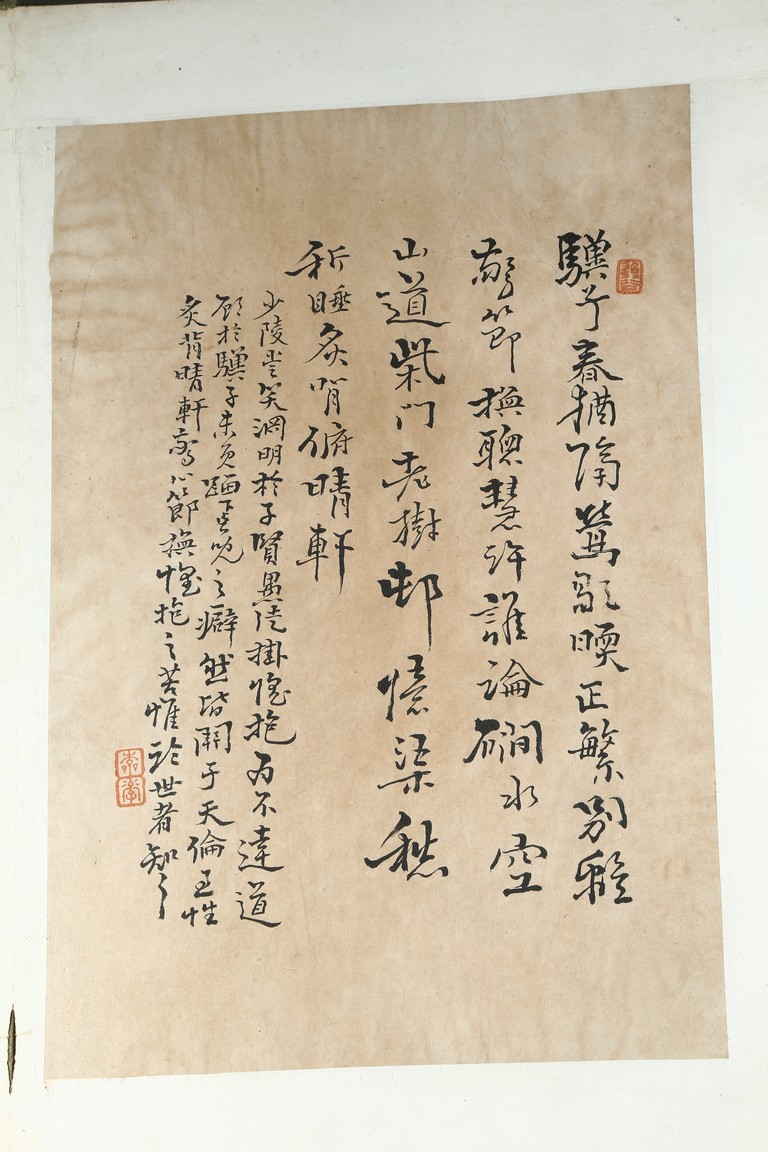 驥子春猶隔鶯歌暖正繁別離
驚節換聰慧許誰論磵水空
山道柴門老樹邨憶渠愁
秖睡炙背俯晴軒
少陵嘗笑淵明於子賢愚徒掛懷抱為不達道
顧於驥子未免蹈之癖然皆關于天倫至性
炙背晴軒驚心節換懷抱之苦惟於世者知之